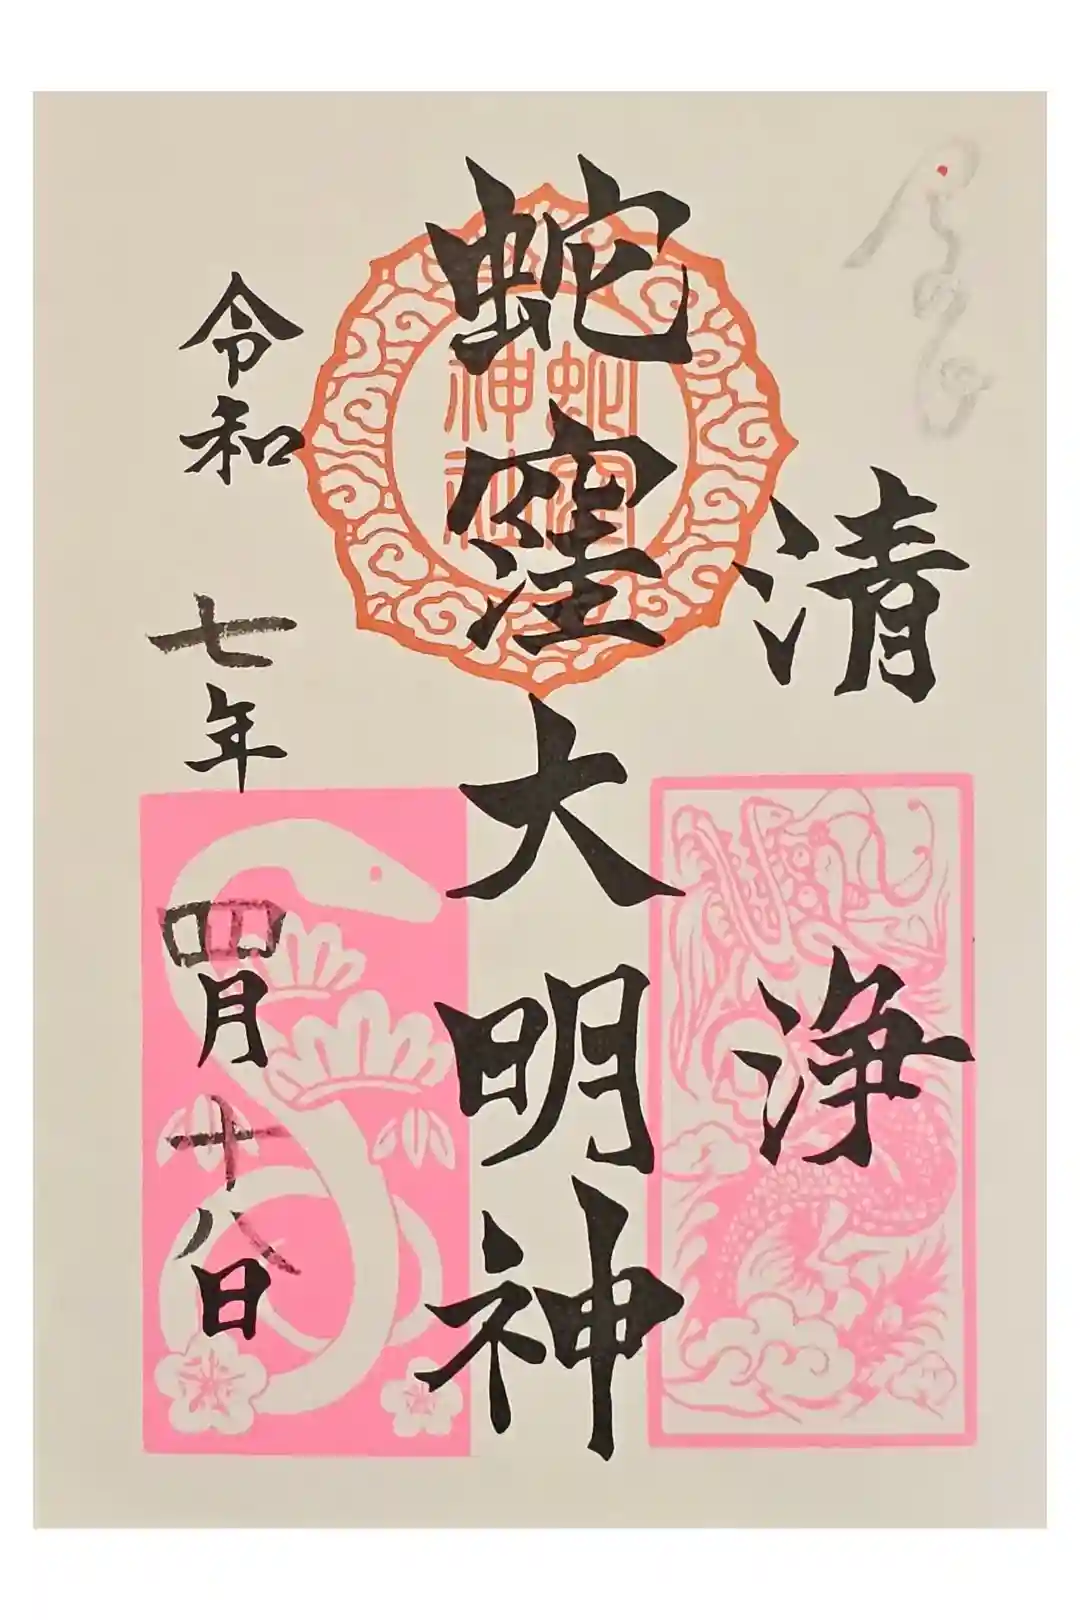 清浄
蛇窪大明神
蛇窪神社
令和七年四月十八日